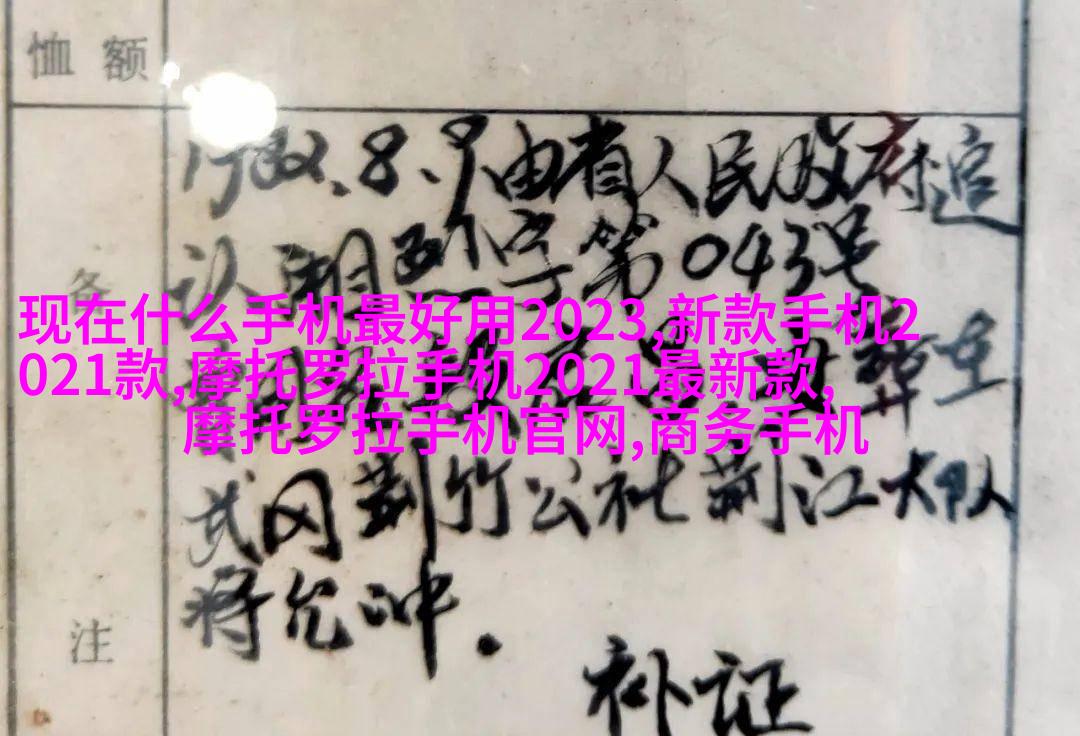 恤 额
1982.8.9由省人民政府追
认湘烈字第043号
备
现在什么手机最好用2023,新款手机2
021款,摩托罗拉手机2021最新款,
摩托罗拉手机官网,商务手机
葬在
武冈荆竹公社荆江大队
将允冲.
注
补证